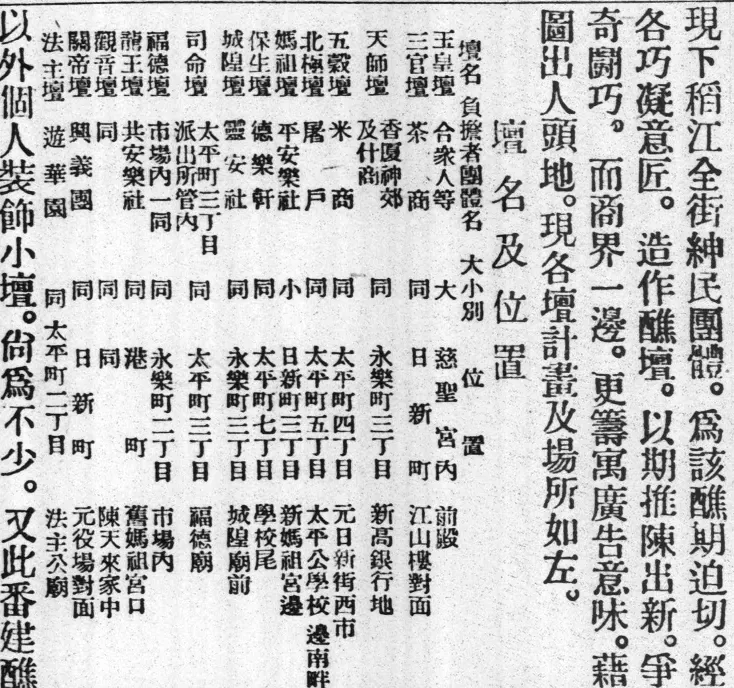 現下稻江全街紳民團體。爲該醮期迫切。經
各巧凝意匠。造作醮壇。以期推陳出新。爭
奇鬪巧。而商界一邊。更籌寓廣告意味。藉
圖出人頭地。現各壇計畫及場所如左。
壇名及位置
壇名 負擔者團體名 大小別 位置
玉皇壇 合衆人等 大 慈聖宮內 前殿
三官壇 茶商 同 日新町 江山樓對面
天師壇 香厦神郊及什商 同 永樂町三丁目 新高銀行地
五穀壇 米商 同 太平町四丁目 元日新街西市
北極壇 屠戶 同 太平町五丁目 太平公學校邊南畔
媽祖壇 平安樂社 小 日新町三丁目 新媽祖宮邊
保生壇 德樂軒 同 太平町七丁目 學校尾
城隍壇 靈安社 同 永樂町三丁目 城隍廟前
司命壇 太平町三丁目派出所管內 同 太平町三丁目 福德廟
福德壇 市場內一同 同 永樂町二丁目 市場內
龍王壇 共安樂社 同 港町 舊媽祖宮口
觀音壇 同 同 同 陳天來家中
關帝壇 興義團 同 日新町 元役場對面
法主壇 遊華園 同 太平町二丁目 法主公廟
以外個人裝飾小壇。尙爲不少。又此番建醮